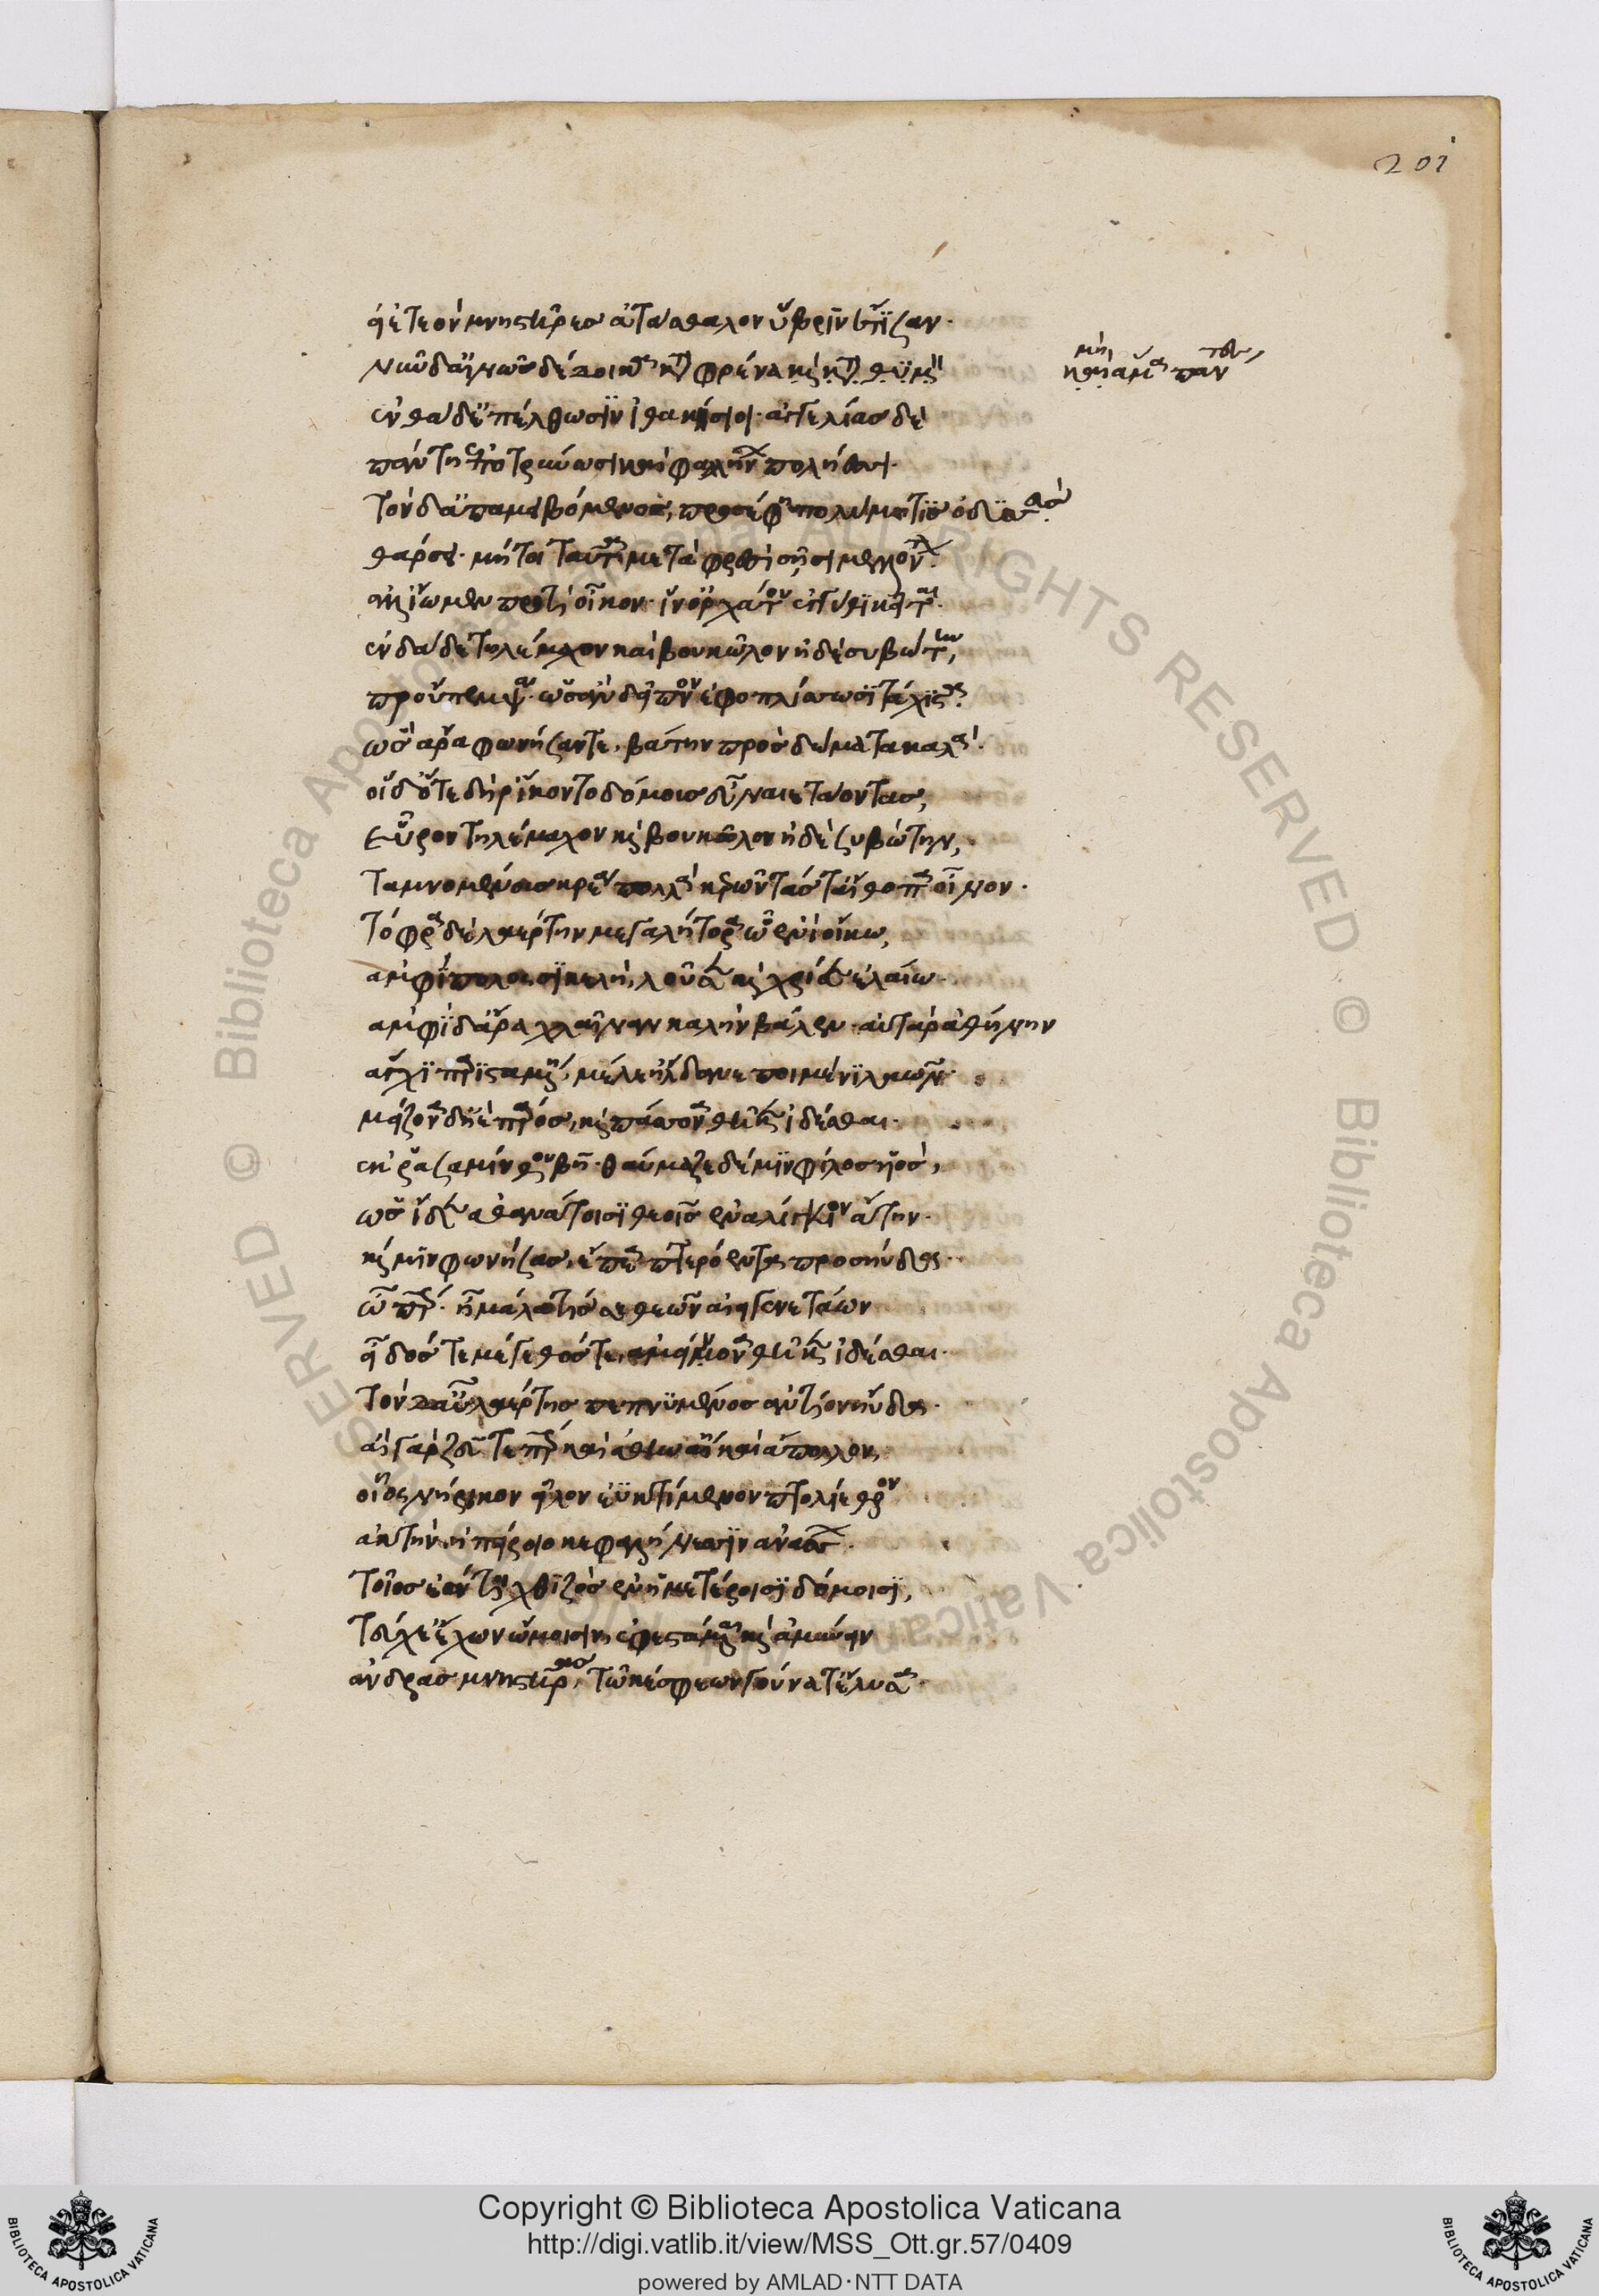 201
εἰ ἐτεὸν μνηστῆρες ἀτάσθαλον ὕβριν ἔτισαν.
νῦν δ' αἰνῶς δέδοικα κατὰ φρένα καὶ κατὰ θυμὸν
μὴ
μὴ ἅμα πάντες
ἐνθάδ' ἐπέλθωσιν ἰθακήσιοι. ἀγγελίας δὲ
πάντη ἐποτρύνωσι κεφαλλήνων πολήεσσι.
τὸν δ' ἀπαμειβόμενος, προσέφη πολύμητις ὀδυσσεύς
θάρσει. μή τοι ταῦτα μετὰ φρεσὶ σῇσι μελόντων.
ἀλλ' ἴομεν προτὶ οἶκον. ἵν' ὀρχάτου ἐγγύθι κεῖται.
ἔνθα δὲ τηλέμαχον καὶ βουκόλον ἠδὲ συβώτην,
προὔπεμψα. ὡς ἂν δεῖπνον ἐφοπλίσσωσι τάχιστα.
ὣς ἄρα φωνήσαντε, βάτην πρὸς δώματα καλά.
οἱ δ' ὅτε δή ῥ' ἵκοντο δόμους εὖ ναιετάοντας,
εὗρον τηλέμαχον καὶ βουκόλον ἠδὲ συβώτην,
ταμνομένους κρέα πολλὰ κερῶντάς τ' αἴθοπα οἶνον.
τόφρα δὲ λαέρτην μεγαλήτορα ᾧ ἐνὶ οἴκω,
ἀμφίπολος σικελὴ, λοῦσεν καὶ χρῖσεν ἐλαίω.
ἀμφὶ δ' ἄρα χλαῖναν καλὴν βάλεν. αὐτὰρ ἀθήνη
ἄγχι παρισταμένη, μέλε' ἤλδανε ποιμένι λαῶν.
μείζονα δ' ἠὲ πάρος, καὶ πάσσονα θῆκεν ἰδέσθαι.
ἐκ ῥ' ἀσαμίνθου βῆ. θαύμαζε δέ μιν φίλος υἱὸς,
ὡς ἴδεν ἀθανάτοισι θεοῖς ἐναλίγκιον ἄντην.
καί μιν φωνήσας, ἔπεα πτερόεντα προσηύδα.
ὦ πάτερ. ἦ μάλα τίς σε θεῶν αἰειγενετάων
εἶδός τε μέγεθός τε, ἀμείνονα θῆκεν ἰδέσθαι.
τὸν δ' αὖ λαέρτης πεπνυμένος ἀντίον ηὔδα.
αἲ γὰρ ζεῦ τε πάτερ καὶ ἀθηναίη καὶ ἄπολλον,
οἷος νήρικον εἷλον ἐϋκτίμενον πτολίεθρον
ἀκτὴν ἠπείροιο κεφαλλήνεσσιν ἀνάσσων.
τοῖος ἐών τοι χθιζὸς ἐν ἡμετέροισι δόμοισι,
τεύχε' ἔχων ὤμοισιν, ἐφεστάμεναι καὶ ἀμύνειν
ἄνδρας μνηστῆρας, τῷ κέ σφεων γούνατ' ἔλυσα.
Copyright © Biblioteca Apostolica Vaticana
http://digi.vatlib.it/view/MSS_Ott.gr.57/0409
powered by AMLAD·NTT DATA